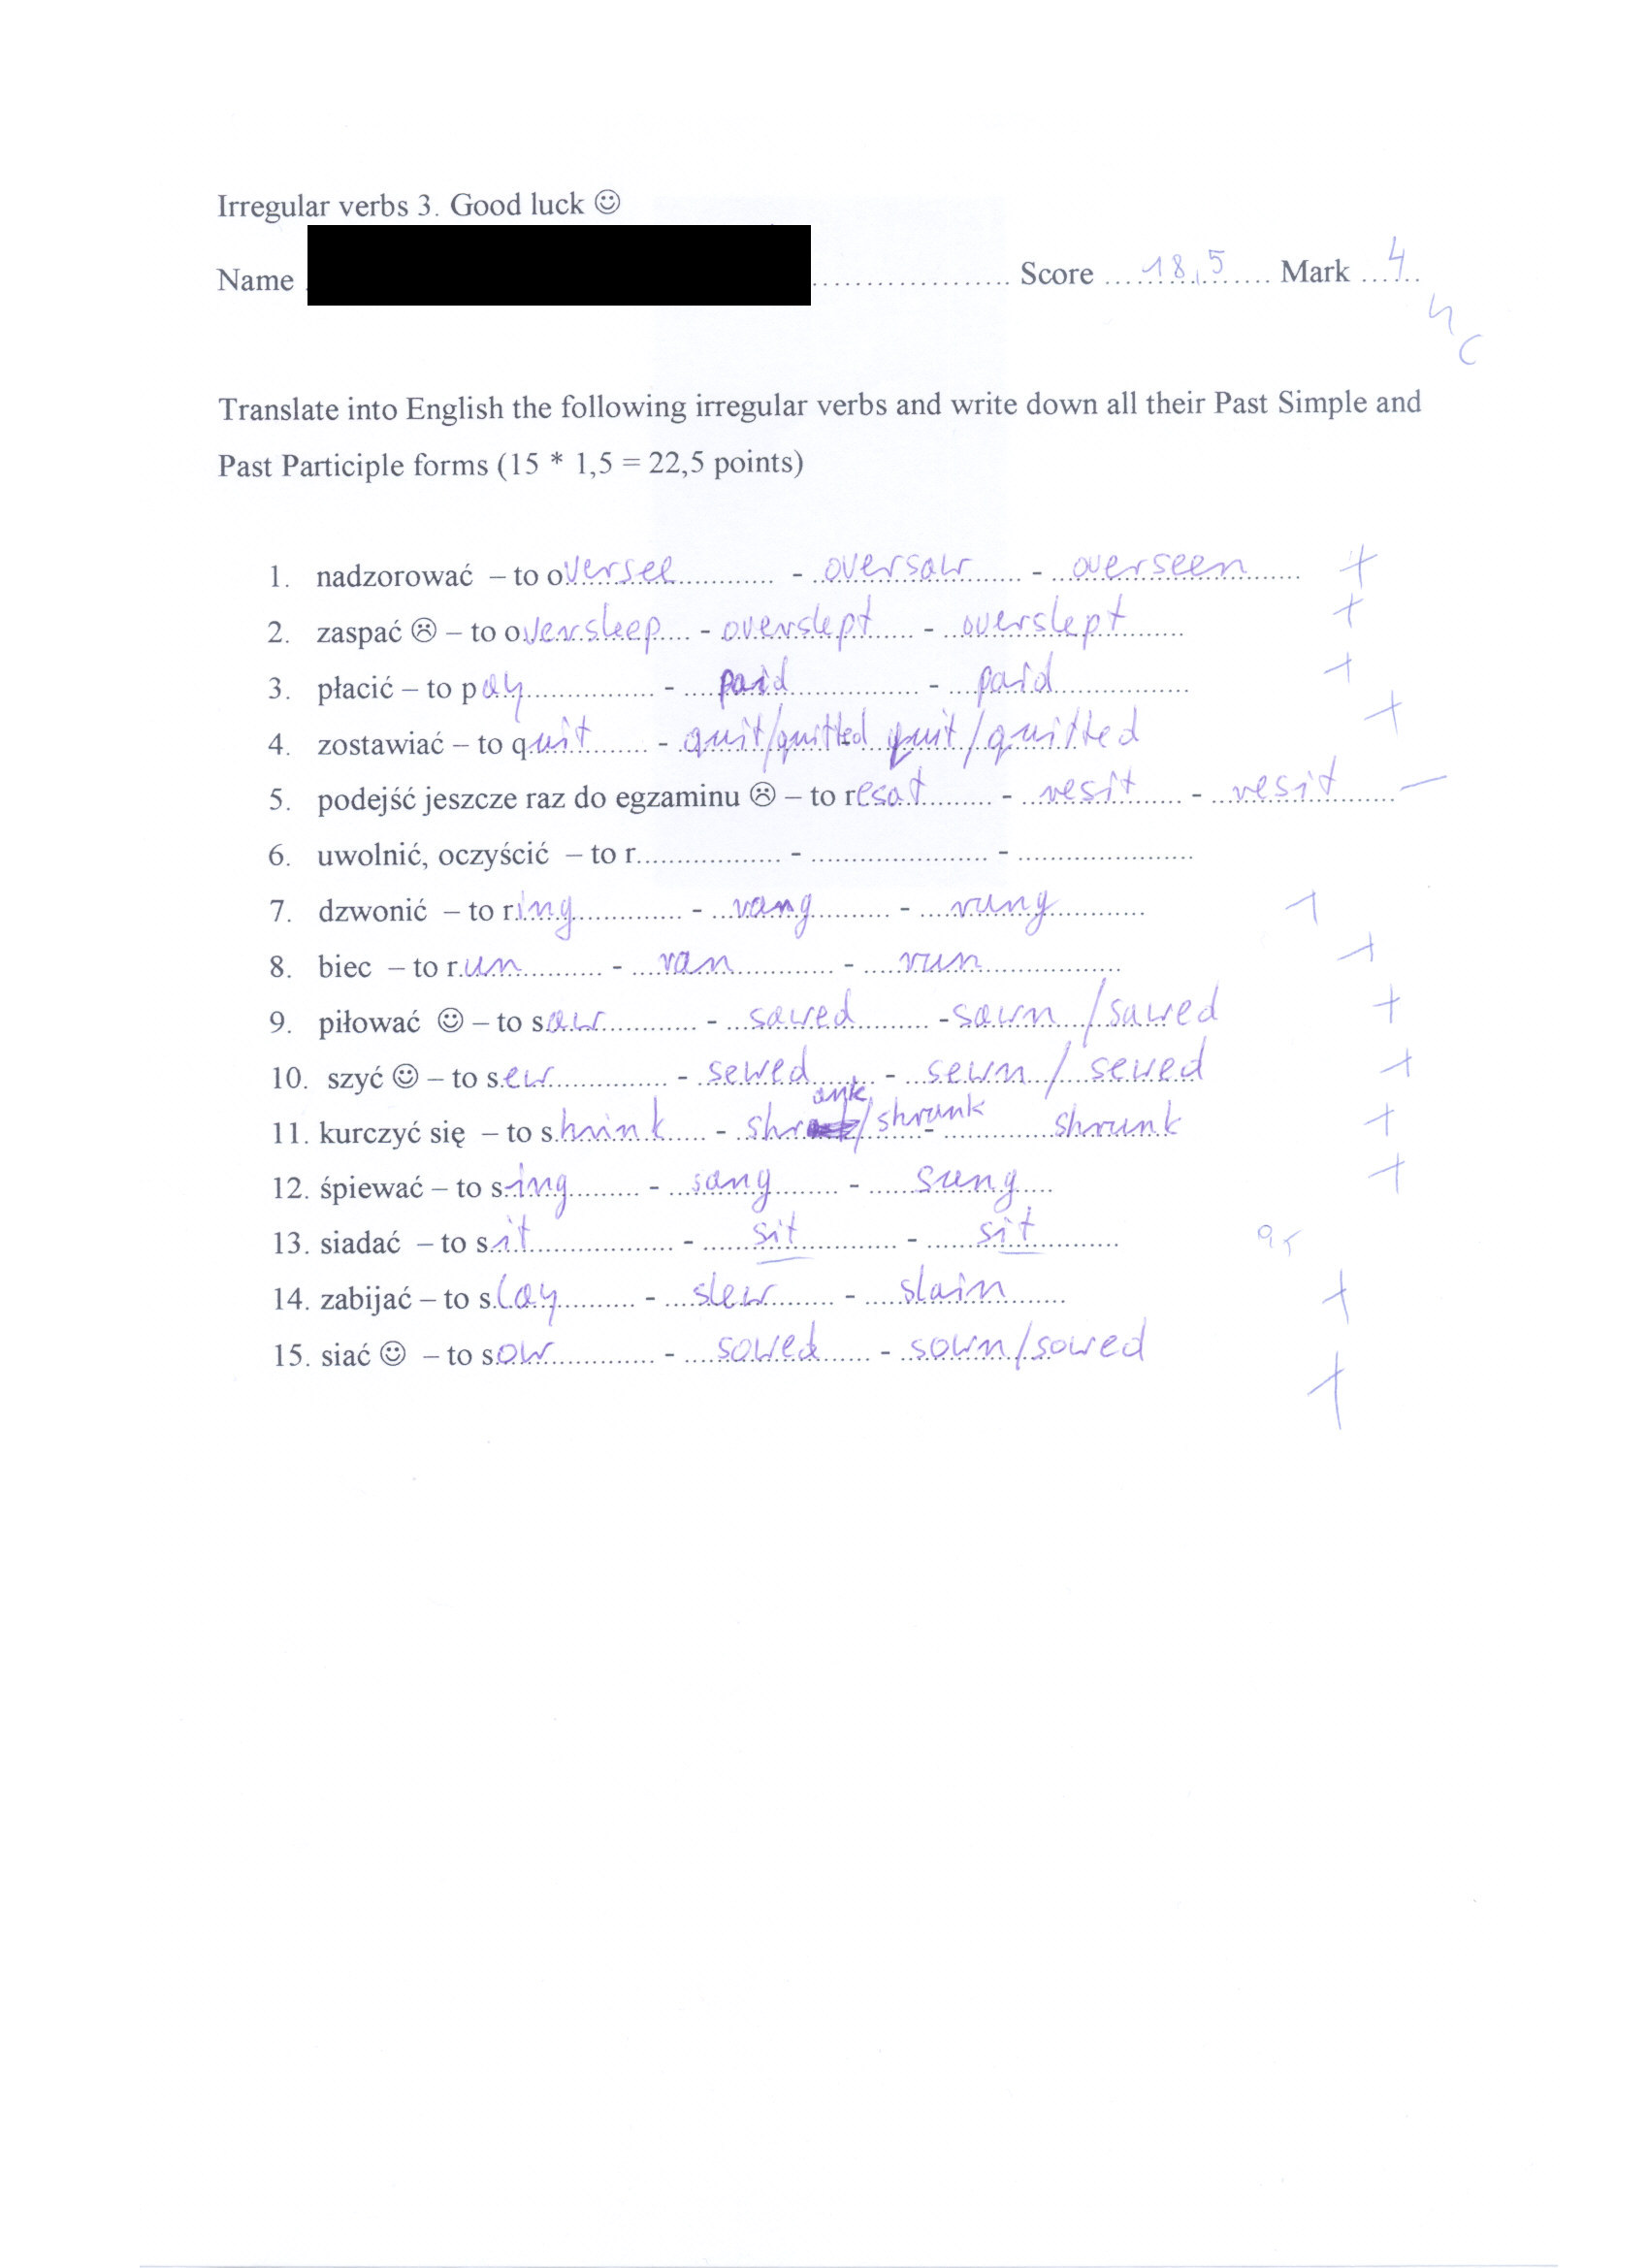 Irregular verbs 3. Good luck ☺
Name ........................ Score ....18,5....... Mark ...4..
Translate into English the following irregular verbs and write down all their Past Simple and
Past Participle forms (15 * 1,5 = 22,5 points)
1. nadzorować – to oversee............ - ..oversaw...... - ..overseen......
2. zaspać ☹ – to oversleep.... - overslept..... - ..overslept.......
3. płacić – to pay................ - ....paid................ - ...paid.................
4. zostawiać – to quit....... - quit/quitted quit/quitted
5. podejść jeszcze raz do egzaminu ☹ – to resat......... - ...resit...... - ...resit........
6. uwolnić, oczyścić – to r.................. - ...................... - ......................
7. dzwonić – to ring............. - ...rang.......... - ....rung............
8. biec – to run.......... - ...ran............. - ....run.................
9. piłować ☺ – to saw............ - ...sawed......... -sawn/sawed
10. szyć ☺ – to sew.............. - ..sewed........ - ...sewn/sewed
11. kurczyć się – to shrink..... - shrank/shrunk - .............shrunk
12. śpiewać – to sing......... - ...sang........ - ......sung....
13. siadać – to sit.................. - .......sit............. - ......sit..........
14. zabijać – to slay.......... - ....slew........ - .....slain.......
15. siać ☺ – to sow............. - ....sowed...... - ..sown/sowed